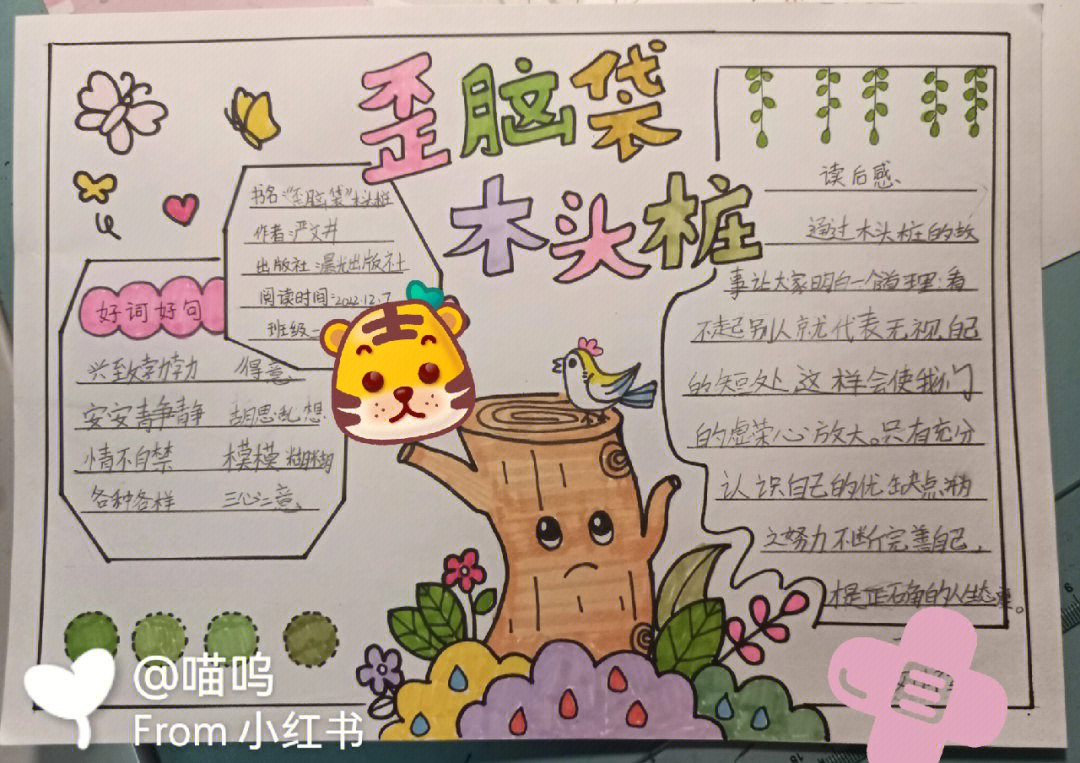 歪脑袋
木头桩
书名:“歪脑袋”木头桩
作者:严文井
出版社:晨光出版社
阅读时间:2022.12.7
班级
好词好句
兴致勃勃 得意
安安静静 胡思乱想
情不自禁 模模糊糊
各种各样 三心二意
读后感
通过木头桩的故
事让大家明白一个道理:看
不起别人就代表无视自己
的短处,这样会使我们
的虚荣心放大。只有充分
认识自己的优缺点,
之努力不断完善自己,
才是正确的人生态度。
@喵呜
From 小红书